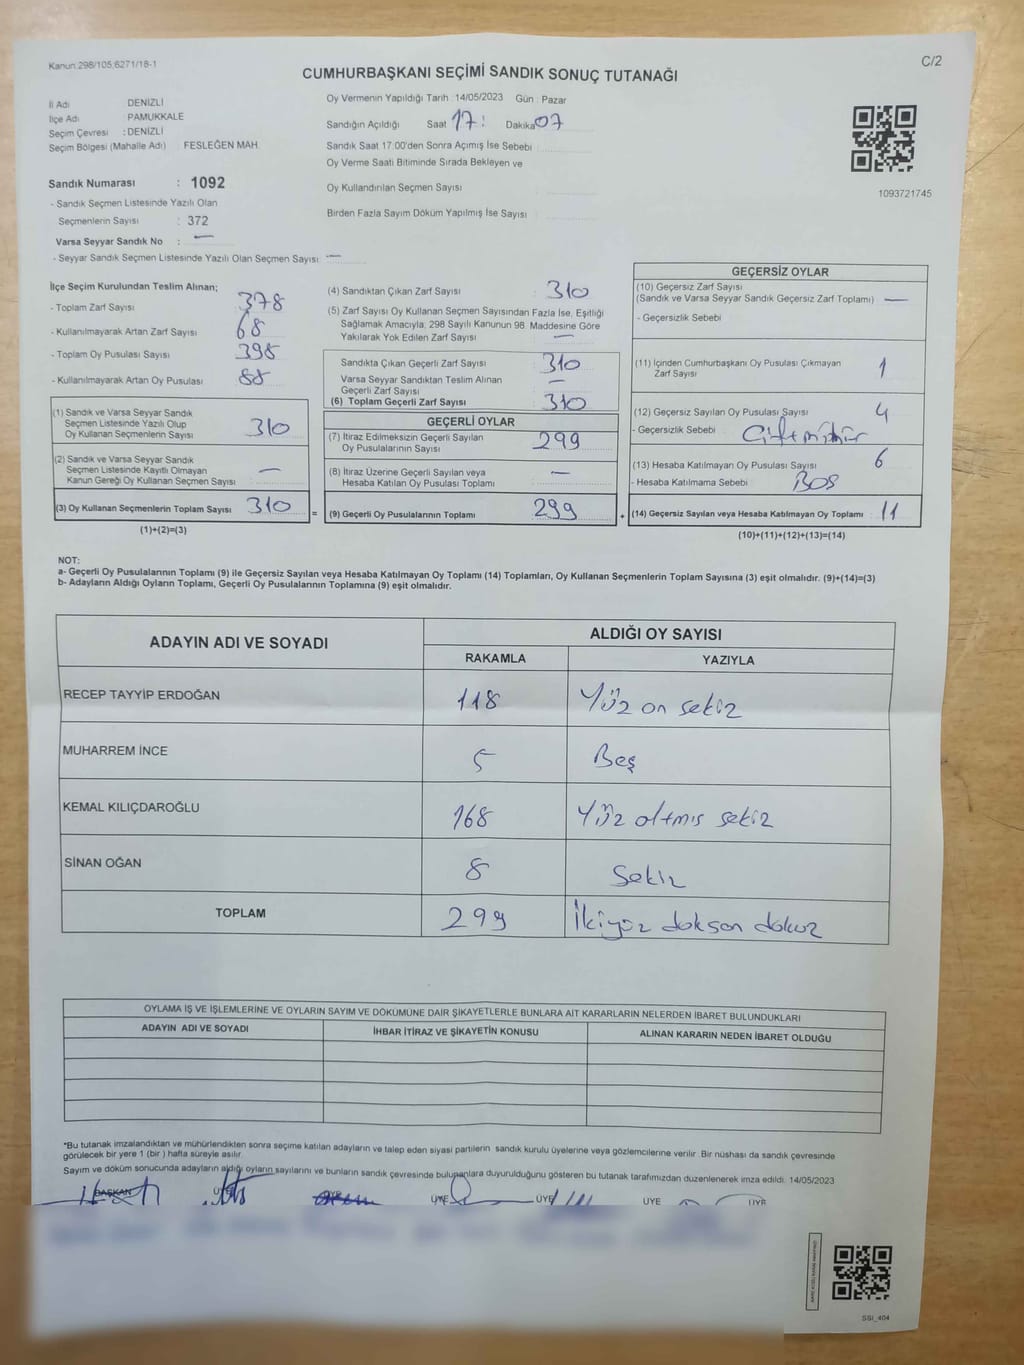 Kanun:298/105,6271/18-1
C/2
CUMHURBAŞKANI SEÇİMİ SANDIK SONUÇ TUTANAĞI
İl Adı DENİZLİ
İlçe Adı PAMUKKALE
Seçim Çevresi : DENİZLİ
Seçim Bölgesi (Mahalle Adı) FESLEĞEN MAH.
Sandık Numarası : 1092
- Sandık Seçmen Listesinde Yazılı Olan
Seçmenlerin Sayısı : 372
Varsa Seyyar Sandık No : —
- Seyyar Sandık Seçmen Listesinde Yazılı Olan Seçmen Sayısı: —
Oy Vermenin Yapıldığı Tarih :14/05/2023 Gün : Pazar
Sandığın Açıldığı Saat 17: Dakika 07
Sandık Saat 17.00'den Sonra Açımış İse Sebebi
Oy Verme Saati Bitiminde Sırada Bekleyen ve
Oy Kullandırılan Seçmen Sayısı
Birden Fazla Sayım Döküm Yapılmış İse Sayısı
1093721745
İlçe Seçim Kurulundan Teslim Alınan;
- Toplam Zarf Sayısı 378
- Kullanılmayarak Artan Zarf Sayısı 68
- Toplam Oy Pusulası Sayısı 398
- Kullanılmayarak Artan Oy Pusulası 88
(1) Sandık ve Varsa Seyyar Sandık
Seçmen Listesinde Yazılı Olup
Oy Kullanan Seçmenlerin Sayısı 310
(2) Sandık ve Varsa Seyyar Sandık
Seçmen Listesinde Kayıtlı Olmayan
Kanun Gereği Oy Kullanan Seçmen Sayısı —
(3) Oy Kullanan Seçmenlerin Toplam Sayısı 310
(1)+(2)=(3)
(4) Sandıktan Çıkan Zarf Sayısı 310
(5) Zarf Sayısı Oy Kullanan Seçmen Sayısından Fazla İse, Eşitliği
Sağlamak Amacıyla, 298 Sayılı Kanunun 98. Maddesine Göre
Yakılarak Yok Edilen Zarf Sayısı —
Sandıkta Çıkan Geçerli Zarf Sayısı 310
Varsa Seyyar Sandıktan Teslim Alınan
Geçerli Zarf Sayısı —
(6) Toplam Geçerli Zarf Sayısı 310
GEÇERLİ OYLAR
(7) İtiraz Edilmeksizin Geçerli Sayılan
Oy Pusulalarının Sayısı 299
(8) İtiraz Üzerine Geçerli Sayılan veya
Hesaba Katılan Oy Pusulası Toplamı —
= (9) Geçerli Oy Pusulalarının Toplamı 299
GEÇERSİZ OYLAR
(10) Geçersiz Zarf Sayısı
(Sandık ve Varsa Seyyar Sandık Geçersiz Zarf Toplamı) —
- Geçersizlik Sebebi
(11) İçinden Cumhurbaşkanı Oy Pusulası Çıkmayan
Zarf Sayısı 1
(12) Geçersiz Sayılan Oy Pusulası Sayısı 4
- Geçersizlik Sebebi Çift mühür
(13) Hesaba Katılmayan Oy Pusulası Sayısı 6
- Hesaba Katılmama Sebebi BOŞ
+ (14) Geçersiz Sayılan veya Hesaba Katılmayan Oy Toplamı : 11
(10)+(11)+(12)+(13)=(14)
NOT:
a- Geçerli Oy Pusulalarının Toplamı (9) ile Geçersiz Sayılan veya Hesaba Katılmayan Oy Toplamı (14) Toplamları, Oy Kullanan Seçmenlerin Toplam Sayısına (3) eşit olmalıdır. (9)+(14)=(3)
b- Adayların Aldığı Oyların Toplamı, Geçerli Oy Pusulalarının Toplamına (9) eşit olmalıdır.
ADAYIN ADI VE SOYADI ALDIĞI OY SAYISI
RAKAMLA YAZIYLA
RECEP TAYYİP ERDOĞAN 118 Yüz on sekiz
MUHARREM İNCE 5 Beş
KEMAL KILIÇDAROĞLU 168 Yüz altmış sekiz
SİNAN OĞAN 8 Sekiz
TOPLAM 299 İkiyüz doksan dokuz
OYLAMA İŞ VE İŞLEMLERİNE VE OYLARIN SAYIM VE DÖKÜMÜNE DAİR ŞİKAYETLERLE BUNLARA AİT KARARLARIN NELERDEN İBARET BULUNDUKLARI
ADAYIN ADI VE SOYADI İHBAR İTİRAZ VE ŞİKAYETİN KONUSU ALINAN KARARIN NEDEN İBARET OLDUĞU
*Bu tutanak imzalandıktan ve mühürlendikten sonra seçime katılan adayların ve talep eden siyasi partilerin sandık kurulu üyelerine veya gözlemcilerine verilir. Bir nüshası da sandık çevresinde
görülecek bir yere 1 (bir) hafta süreyle asılır.
Sayım ve döküm sonucunda adayların aldığı oyların sayılarını ve bunların sandık çevresinde bulunanlara duyurulduğunu gösteren bu tutanak tarafımızdan düzenlenerek imza edildi. 14/05/2023
BAŞKAN ÜYE ÜYE ÜYE ÜYE ÜYE
SSI_404